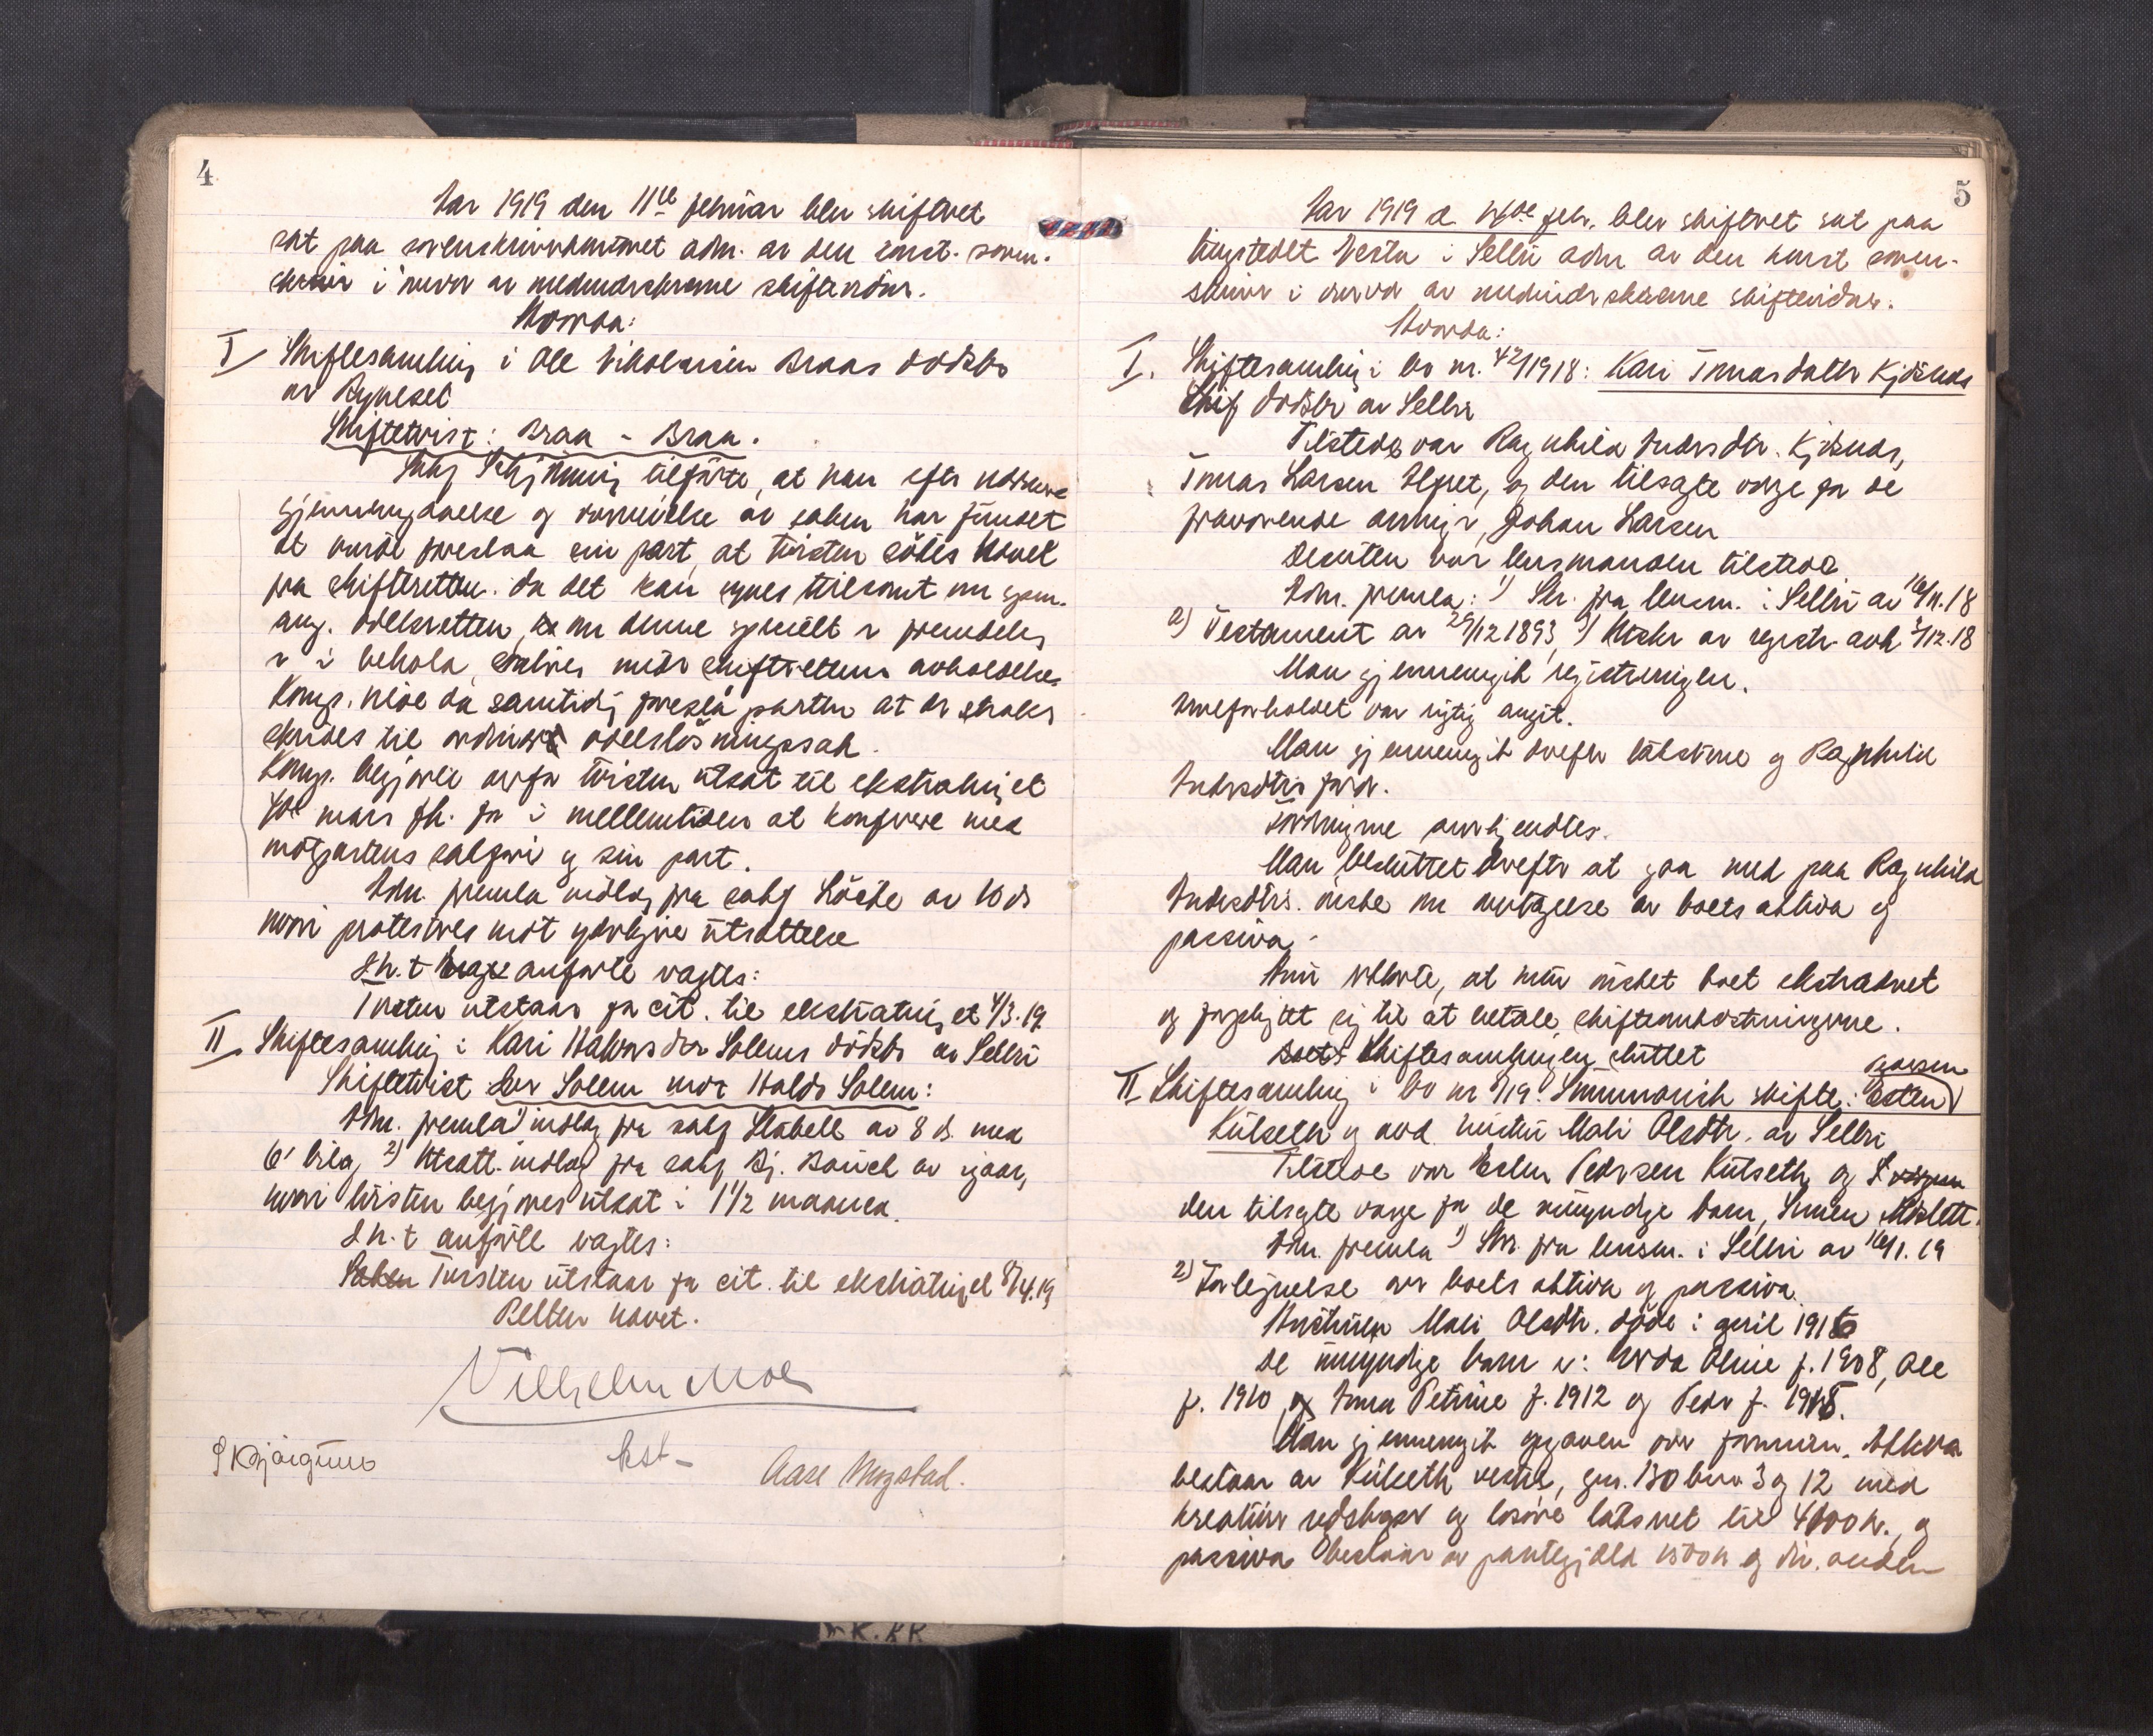 4
Aar 1919 den 11te februar blev skifteret
sat paa sorenskriverkontoret adm. av den konst. soren-
skriver i nærvær av medunderskrevne skiftevidner.
Hvorda:
I Skiftesamling i Ole Braas dødsbo
av Bynesset
Skiftetvist: Braa - Braa.
Sakf tilførte, at han efter nærmere
gjennemgaaelse og overveielse av saken har fundet
at burde foreslaa sin part, at tvisten søkes hævet
fra skifteretten. da det kan synes tvilsomt om spm.
ang. odelsretten, om denne specielt er fremdeles
er i behold, under skifterettens avholdelse.
Komp. vilde da samtidig foreslå parten at der straks
skrides til ordinær odelsløsningssak.
Komp. begjærte derfor tvisten utsat til ekstrating et
4de mars fk. for i mellemtiden at konferere med
motpartens sakfører og sin part.
Adm. fremla indlæg fra sakf Løche av 10 ds
hvori protesteres mot yderligere utsættelse
S.k.t anførte vagtes:
Tvisten utstaar for cit. til ekstrating et 4/3.19.
II Skiftesamling i Kari Halvorsdtr Solems dødsbo av Selbu
Skiftetvist Solem mot Haldo Solem:
Adm. fremla 1) indlæg fra sakf Stabell av 8 ds. med
6 bilag, 2) Utsætt. indlæg fra sakf Bj. Bauck av igaar,
hvori tvisten begjæres utsat i 1 1/2 maaned.
S.k.t anførte vagtes:
Saken Tvisten utstaar for cit. til ekstrating et 8/4.19
Retten hævet.
Vilhelm Moe
kst-
Aase Mogstad.
5
Aar 1919 d. febr. blev skifteret sat paa
tingstedet Vesta i Selbu adm av den konst soren-
skriver i nærvær av medunderskrevne skiftevidner.
Hvorda:
I. Skiftesamling i bo nr. 42/1918: Kari Tomasdatter Kjøsnes
Skif dødsbo av Selbu
Tilstede var Ragnhild Andersdtr. Kjøsnes,
Tomas Larsen og den tilsagte verge for de
fraværende arvinger, Johan Larsen
Desuten var lensmanden tilstede
Adm. fremla: 1) Skr. fra lensm. i Selbu av 16/11.18
2) Testament av 29/12 1893, 3) Utskr av registr. avh. 3/12.18
Man gjennemgik registreringen.
Arveforholdet var rigtig angit.
Man gjennemgik derefter takstene og Ragnhild
Andersdtrs fordr.
Fordringene anerkjendtes.
Man besluttet derefter at gaa med paa Ragnhild
Andersdtrs. ønske om overtagelse av boets aktiva og
passiva.
Hun erklærte, at hun ønsket boet ekstradert
og forpligtet sig til at betale skifteomkostningerne.
Boets Skiftesamlingen sluttet
II Skiftesamling i bo nr 3/19. Summarisk skifte: Esten Pedersen
Kulseth og avd. hustru Mali Olsdtr. av Selbu
Tilstede var Esten Pedersen Kulseth og
den tilsagte verge for de umyndige barn, Simen
Adm. fremla 1) Skr. fra lensm. i Selbu av 16/1.19
2) Fortegnelse over boets aktiva og passiva.
Hustruen Mali Olsdtr. døde i april 1916
De umyndige barn er: Oline f. 1908, Ole
f. 1910, og Anna Petrine f. 1912 og Peder f. 1915.
Man gjennemgik opgaven over formuen. Aktiva
bestaar av Kulseth vestre, gnr. 130 bnr 3 og 12 med
kreaturer redskaper og løsøre taksert til 4000 kr., og
passiva bestaar av pantegjæld 1500 kr og div. anden